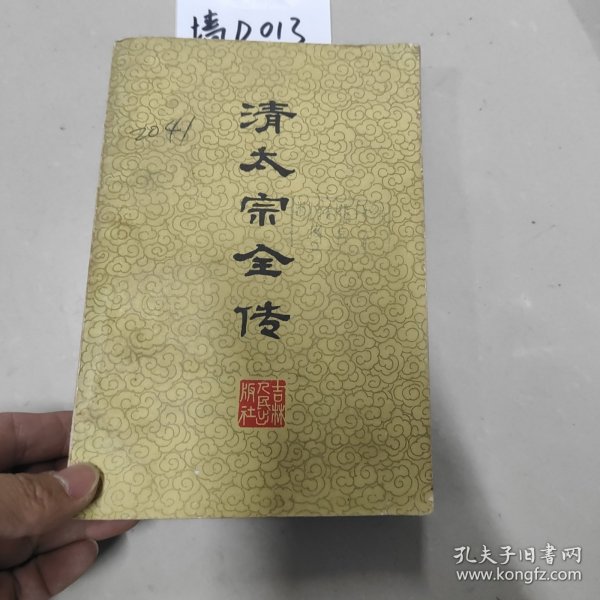 墙D013
2041
清太宗全传
吉林
人民出
版社
孔夫子旧书网
www.kongfz.com